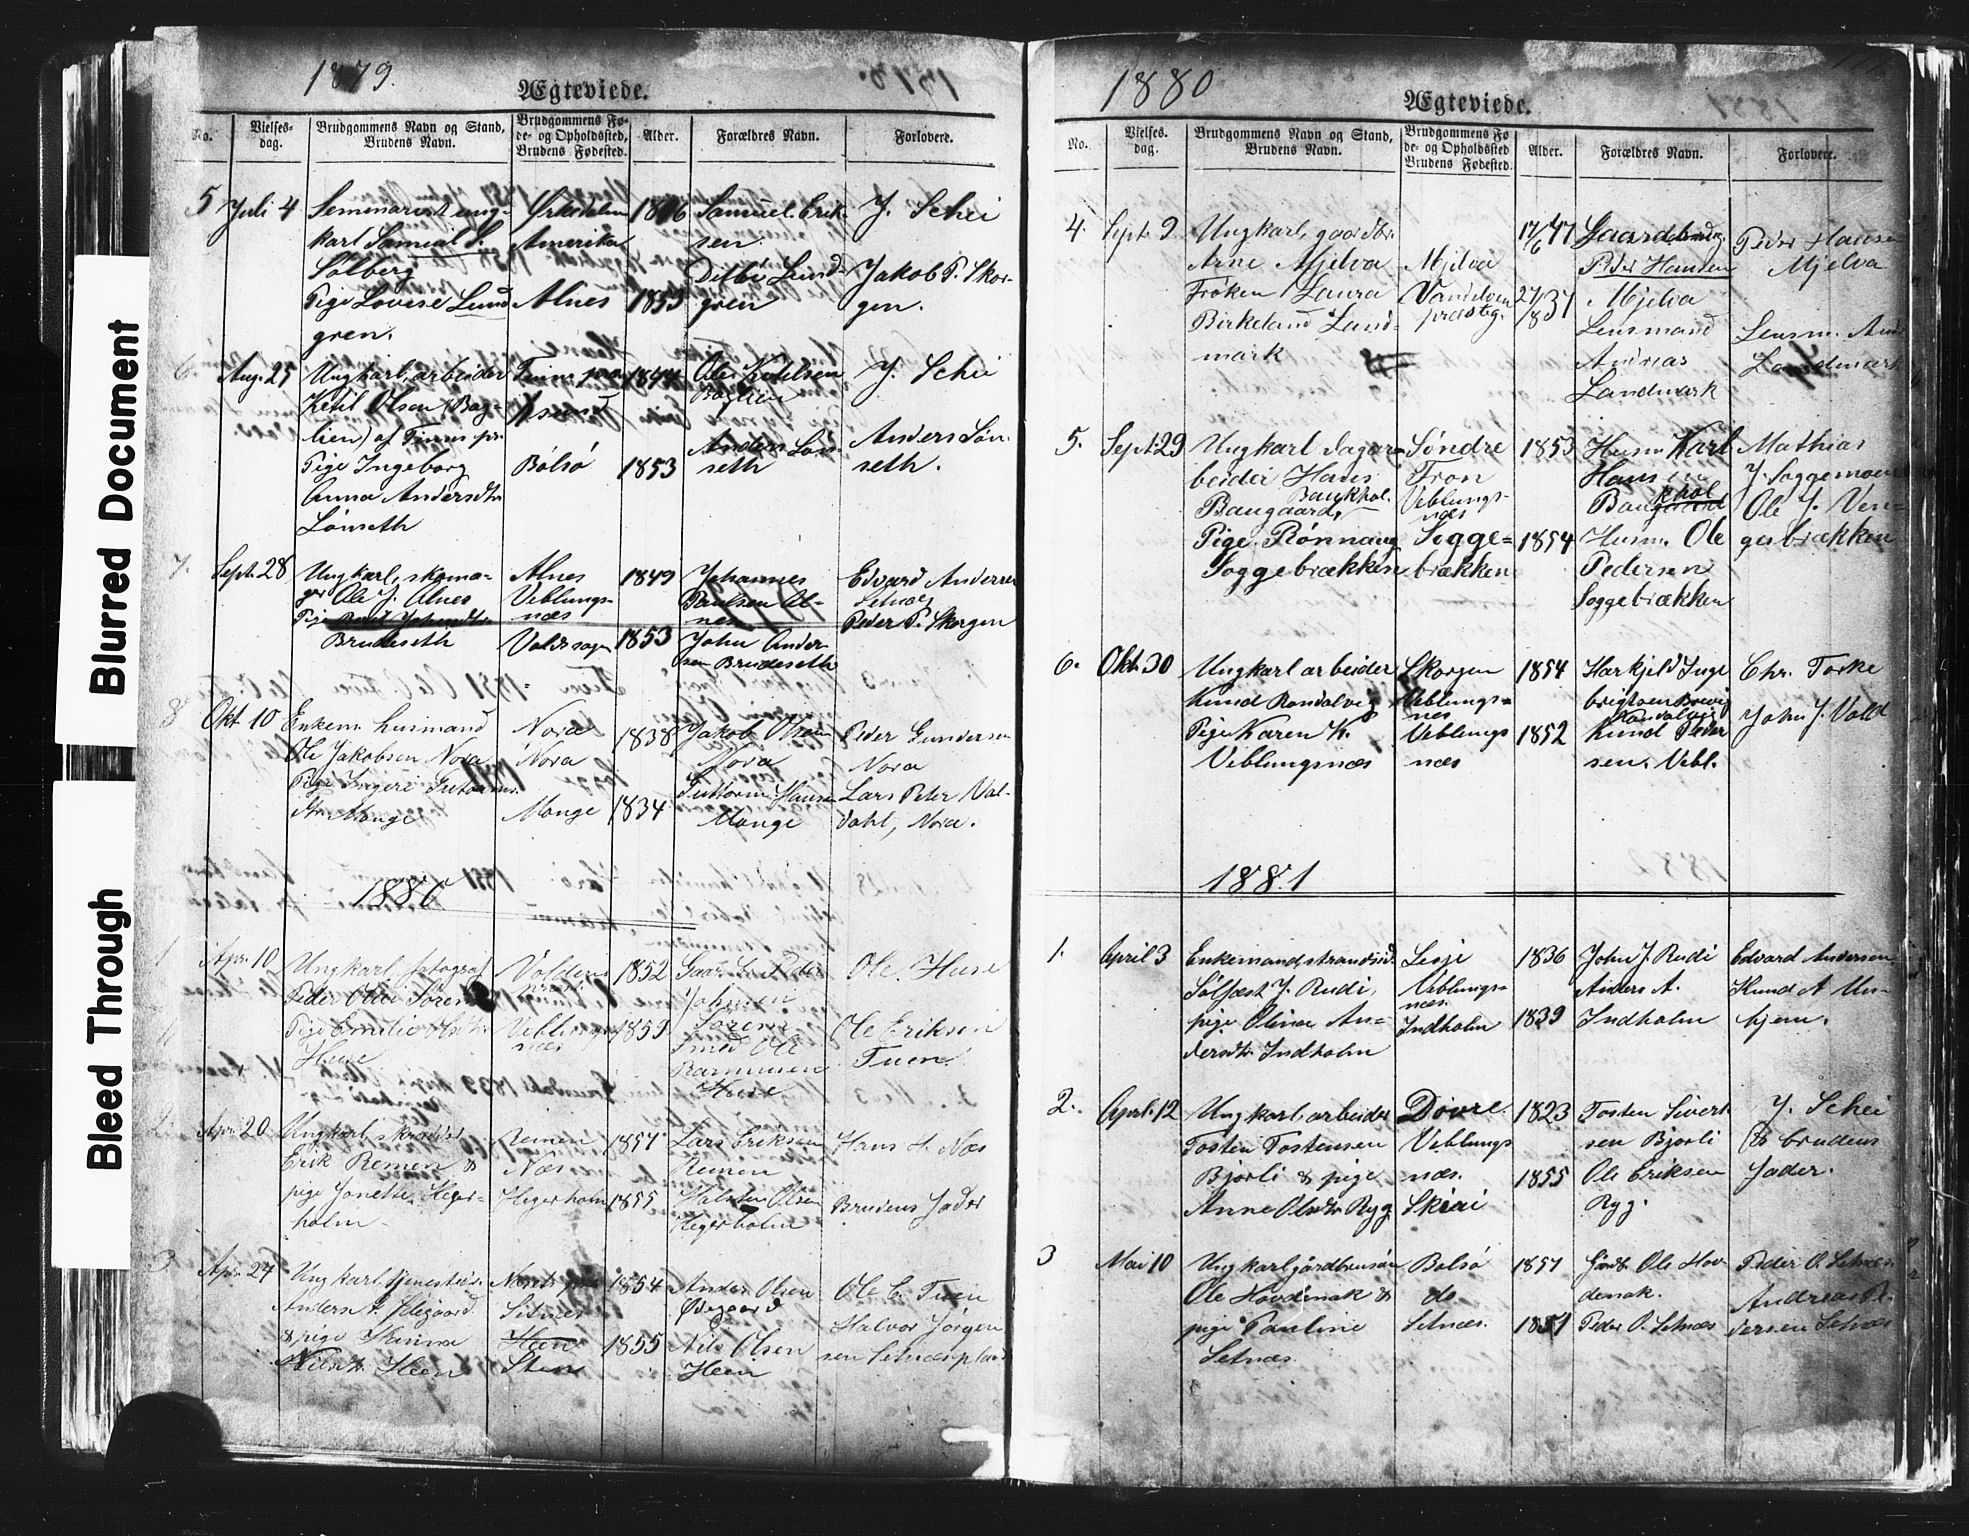 Blurred Document
Bleed Through
1879.
Ægteviede.
No.
Vielses-
dag.
Brudgommens Navn og Stand,
Brudens Navn.
Brudgommens Fø-
de- og Opholdssted,
Brudens Fødested.
Alder.
Forældres Navn.
Forlovere.
5 Juli 4
Seminarist ung-
karl Samuel S.
Solberg
Pige Lovise Lund
gren.
Ørkedalen
Amerika
Alnes
1853
Samuel Erik-
sen
Lund-
gren
J. Schei
Jakob P. Skor-
gen.
6. Aug. 25
Ungkarl, arbeider
Ketil Olsen (Bag-
lien) af
Pige Ingeborg
Anna Andersdtr
Lönseth
Bolsö
1844
1853
Ole Ketilsen
Baglien
Anders Lön-
seth
J. Schei
Anders Lön-
seth.
7. Sept. 28
Ungkarl, skoma-
ger Ole J. Alnes
Pige
Brudeseth
Alnes
Veblungs-
næs
1849
1853
Johannes
Paulsen Al-
nes
John Ander-
sen Brudeseth
Edvard Andersen
Setnes
Peder P. Skorgen
8 Okt 10
Enkem. husmand
Ole Jakobsen Nora
Pige Ingeri Guttorms
dtr Monge
Nora
Nora
Monge
1838
1834
Jakob Olsen
Nora
Guttorm Hansen
Monge
Peder Gundersen
Nora
Lars Peter Val-
dahl, Nora.
1880
1 Apr. 10
Ungkarl, fotograf
Peder Olai Sörensen
Pige Emilie Olsdtr
Huse
Volden
Veblungs
næs
1852
1859
Johnsen
Smed Ole
Rasmusen
Huse
Ole Huse
Ole Eriksen
Tuen.
2. Apr. 20
Ungkarl, skrædder
Erik Remen &
pige Janette Heger-
holm
Remen
Næs
Hegerholm
1857
1855
Lars Eriksen
Remen
Halsten Olsen
Hegerholm
Hans H. Næs
Brudens Fader
3 Apr. 24
Ungkarl, tjenestes.
Anders A. Ødegaard
& pige
Nilsdtr Heen
Setnes
Heen
Sten
1854
1855
Anders Olsen
Ødegaard
Nils Olsen
Heen
Ole E. Tuen
Halvor Jörgen
sen Setnæsplads
1880
Ægteviede.
No.
Vielses-
dag.
Brudgommens Navn og Stand,
Brudens Navn.
Brudgommens Fø
de- og Opholdssted
Brudens Fødested.
Alder.
Forældres Navn.
Forlovere.
4. Sept. 9
Ungkarl, gaardbr.
Arne Mjelva
Frøken Laura
Birkeland Land-
mark
Mjelva
Vandelven
præsteg.
17/6 47
27/8 37
Gaardbrug.
Peder Hansen
Mjelva
Lensmand
Andreas
Landmark
Peder Hansen
Mjelva
Lensm. And.
Landmark
5. Sept. 29
Ungkarl dagar-
beider Hans
Baukhol.
Baugaard,
Pige Rönnaug
Soggebrækken
Söndre
Fron
Veblungs-
næs
Sogge-
brækken
1853
1854
Husm. Karl
Hansen
Husm. Ole
Pedersen
Soggebrækken
Mathias
J. Soggemoen
Ole J. Ven-
gesbrækken
6. Okt. 30
Ungkarl arbeider
Knud Randalvig
Pige Karen K.
Veblungsnæs
Skorgen
Veblungs-
næs
Veblungs
næs
1854
1852
Harkjeld Inge
brigtsen
Randalvig
Knud Peder
sen. Vebl.
Chr. Torke
John J. Vold
1881
1. April 3
Enkemand, strandsid.
Sölfest J. Rudi,
pige Olina An-
dersdtr Indholm
Lesje
Veblungs-
næs.
Indholm
1836
1839
John J. Rudi
Anders A.
Indholm
Edvard Andersen
Knud A Un-
hjem.
2. April. 12
Ungkarl, arbeider
Tosten Tostensen
Bjorli & pige
Anne Olsdtr Ryg
Dovre
Veblungs
næs.
Skiai
1823
1855
Tosten Sivert
sen Bjorli
Ole Eriksen
Ryg.
J. Schei
& brudens
Fader.
3 Mai 10
Ungkarl gårdbrusön
Ole Hovdenak &
pige Pauline
Setnæs
Bolsö
do
Setnæs.
1857
1851
Gårdb. Ole Hov-
denak.
Peder O. Setnæs
Peder O. Setnæs
Andreas Pe-
dersen Setnæs